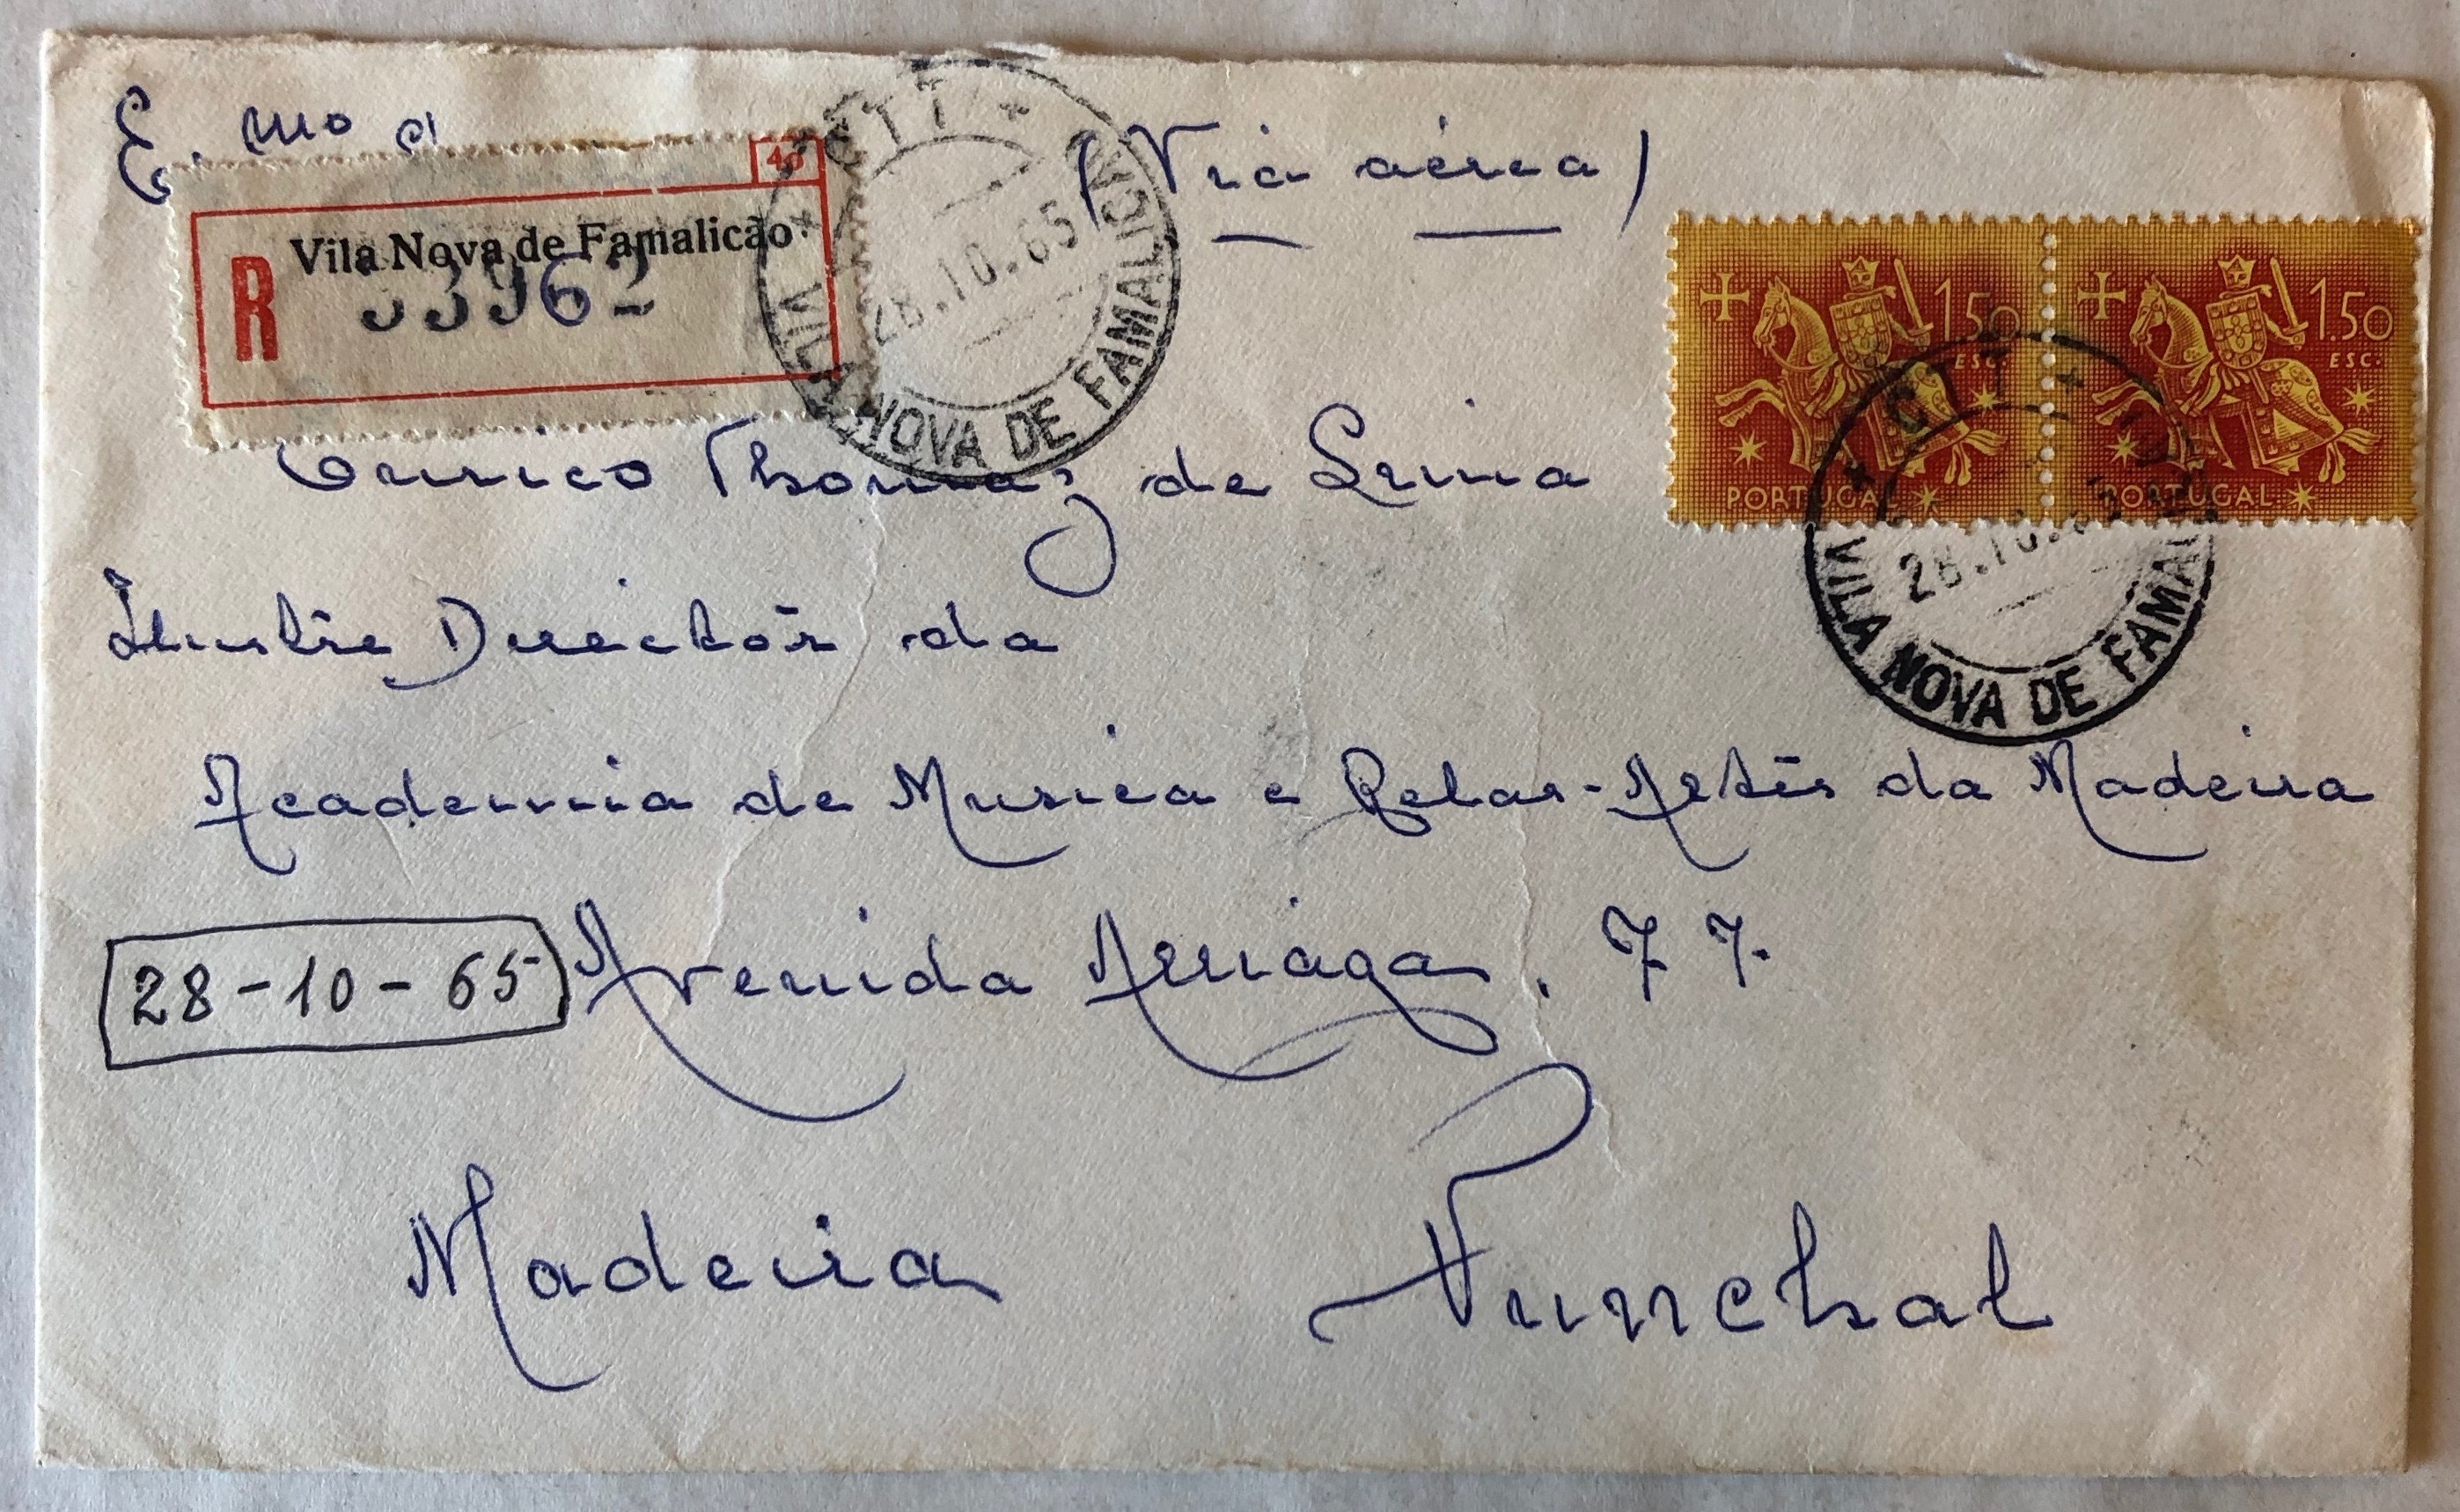 E. mo
(Via aérea)
45
R Vila Nova de Famalicão
CTT
28.10.65
VILA NOVA DE FAMALICÃO
1.50
ESC.
PORTUGAL
1.50
ESC.
PORTUGAL
CTT
28.10.
VILA NOVA DE FAMAL
Eurico Thomaz de Lima
Ilustre Director da
Academia de Musica e Belas-Artes da Madeira
28-10-65
Avenida Arriaga, 77.
Madeira Funchal